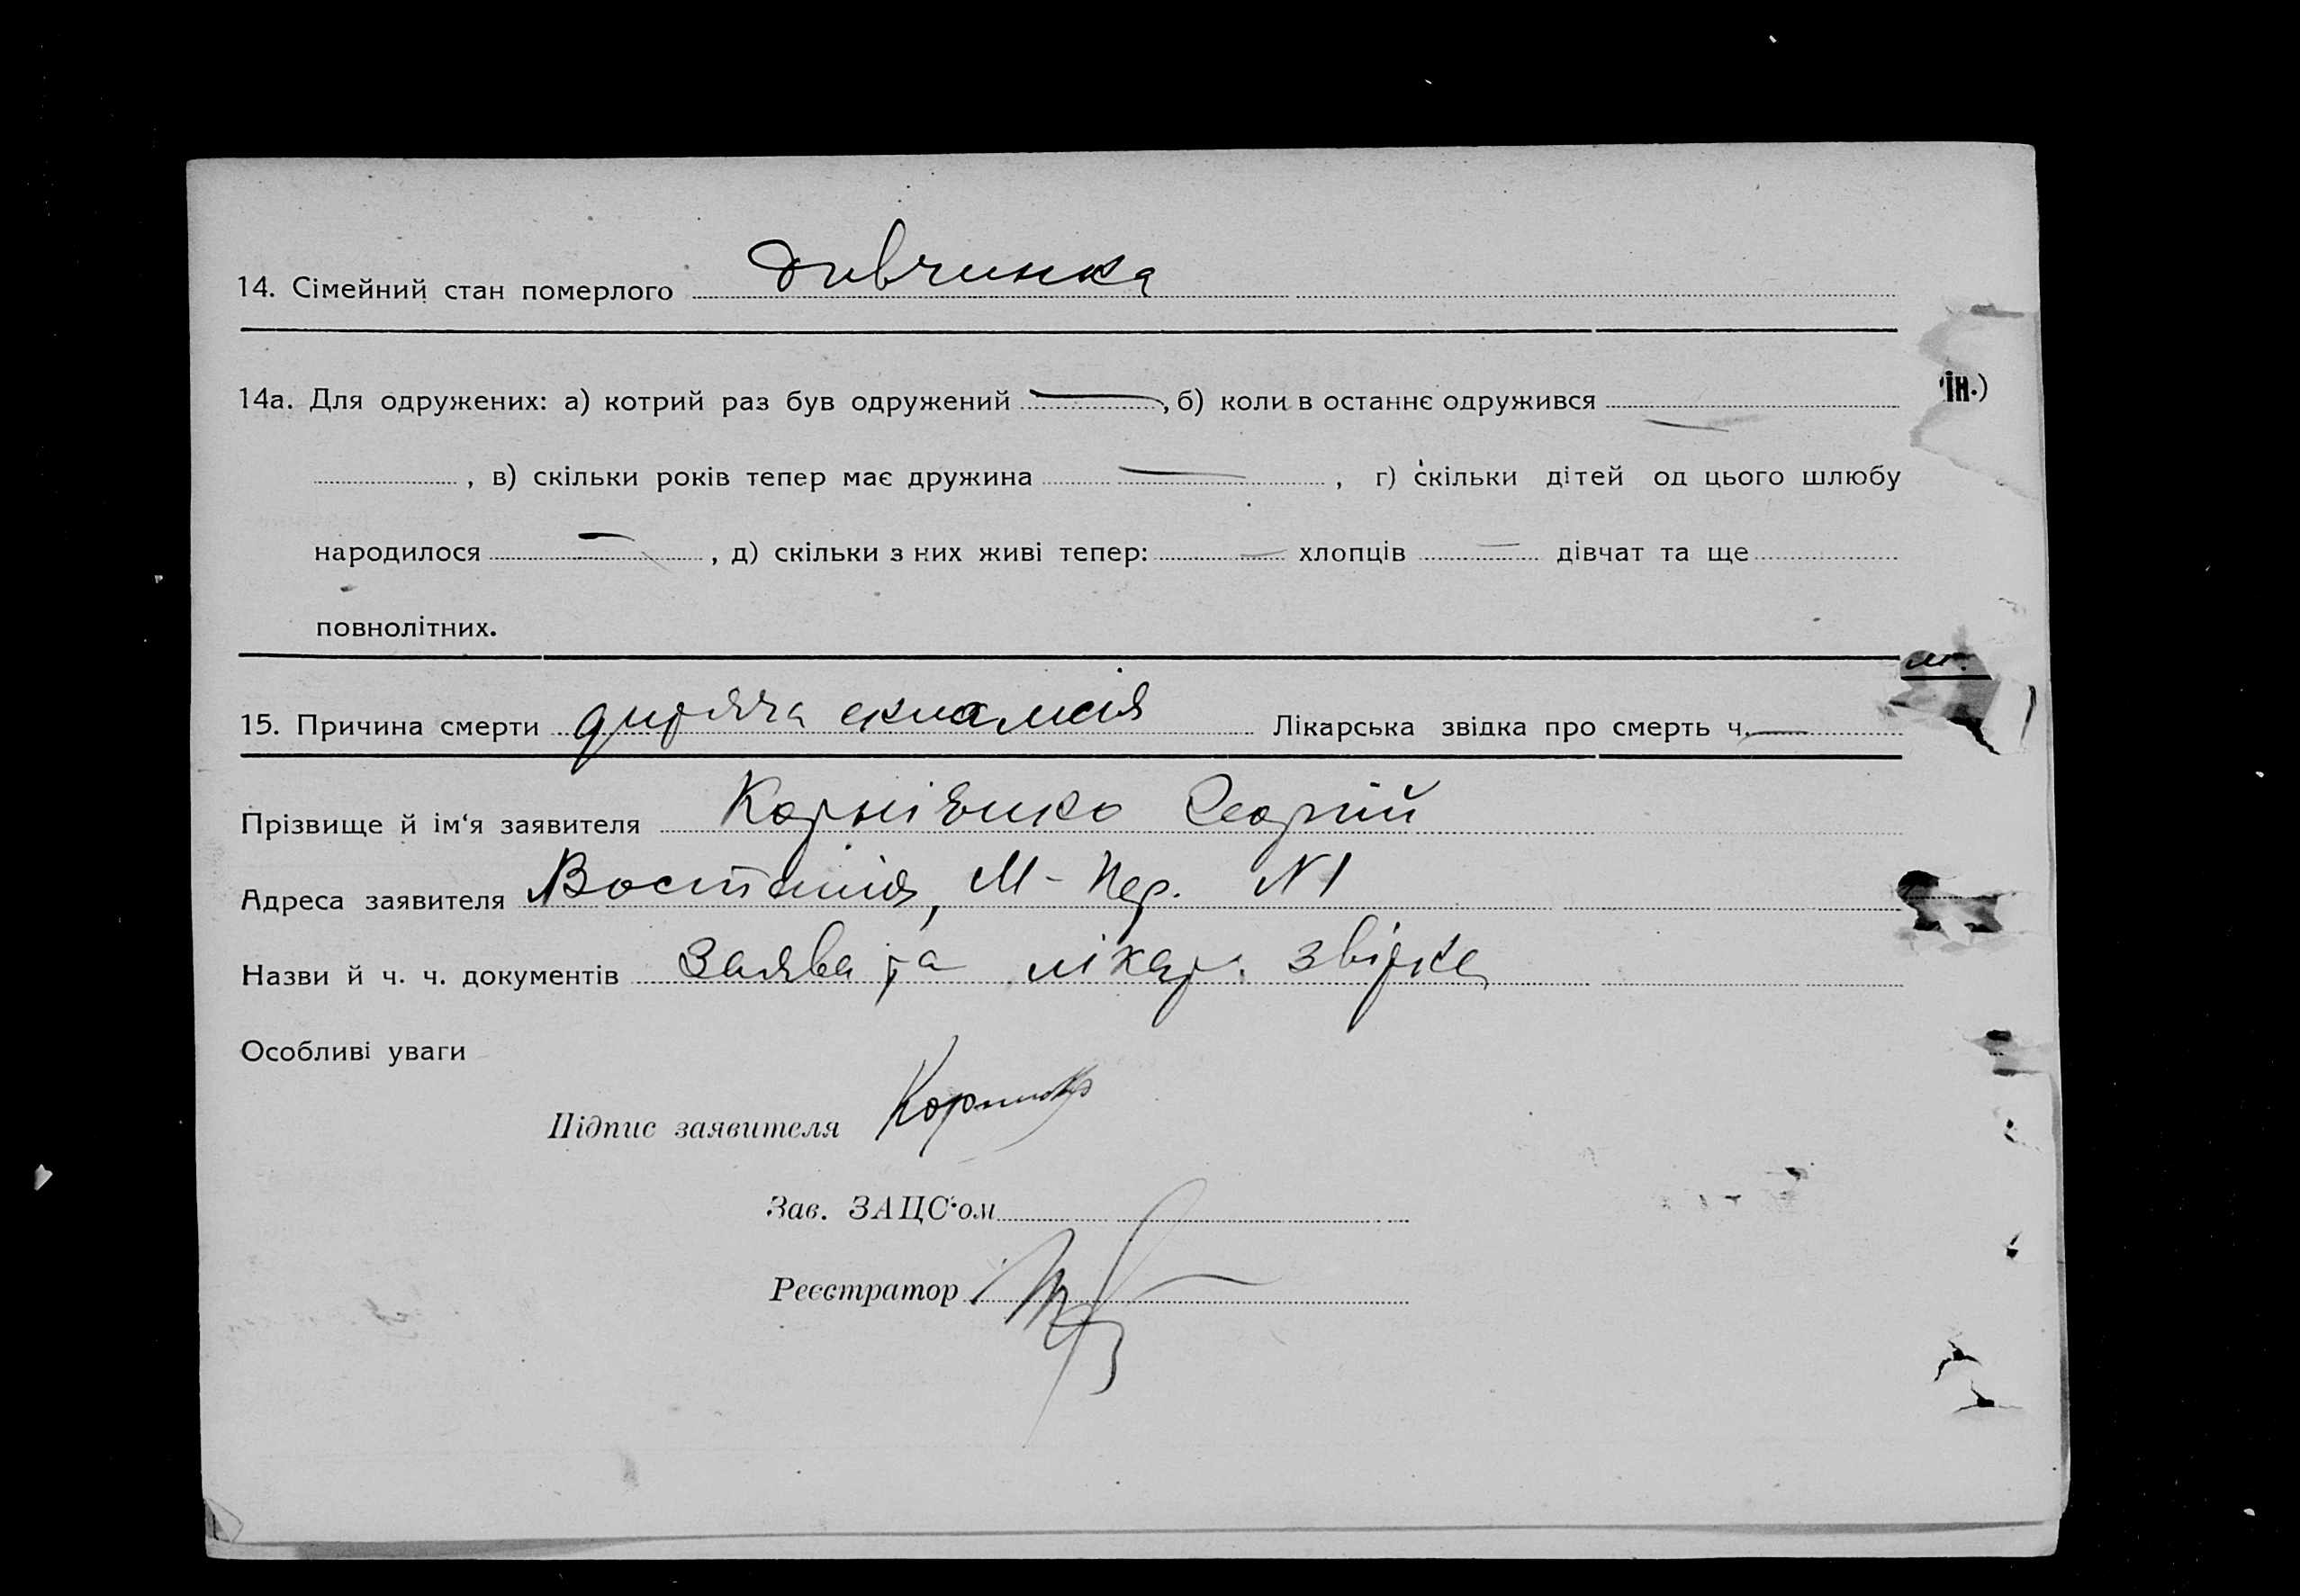 14. Сімейний стан померлого дивчинка
14а. Для одружених: а) котрий раз був одружений —, б) коли в останнє одружився —
ін.)
, в) скільки років тепер має дружина — , г) скільки дітей од цього шлюбу
народилося — , д) скільки з них живі тепер: — хлопців — дівчат та ще
повнолітних.
15. Причина смерти дитяча еклампсія Лікарська звідка про смерть ч. —
Прізвище й ім'я заявителя Корнієнко Георгій
Адреса заявителя Востания, М-Пер. N1
Назви й ч. ч. документів Заява та лікар. звідка
Особливі уваги
Підпис заявителя
Зав. ЗАЦС'ом
Реєстратор